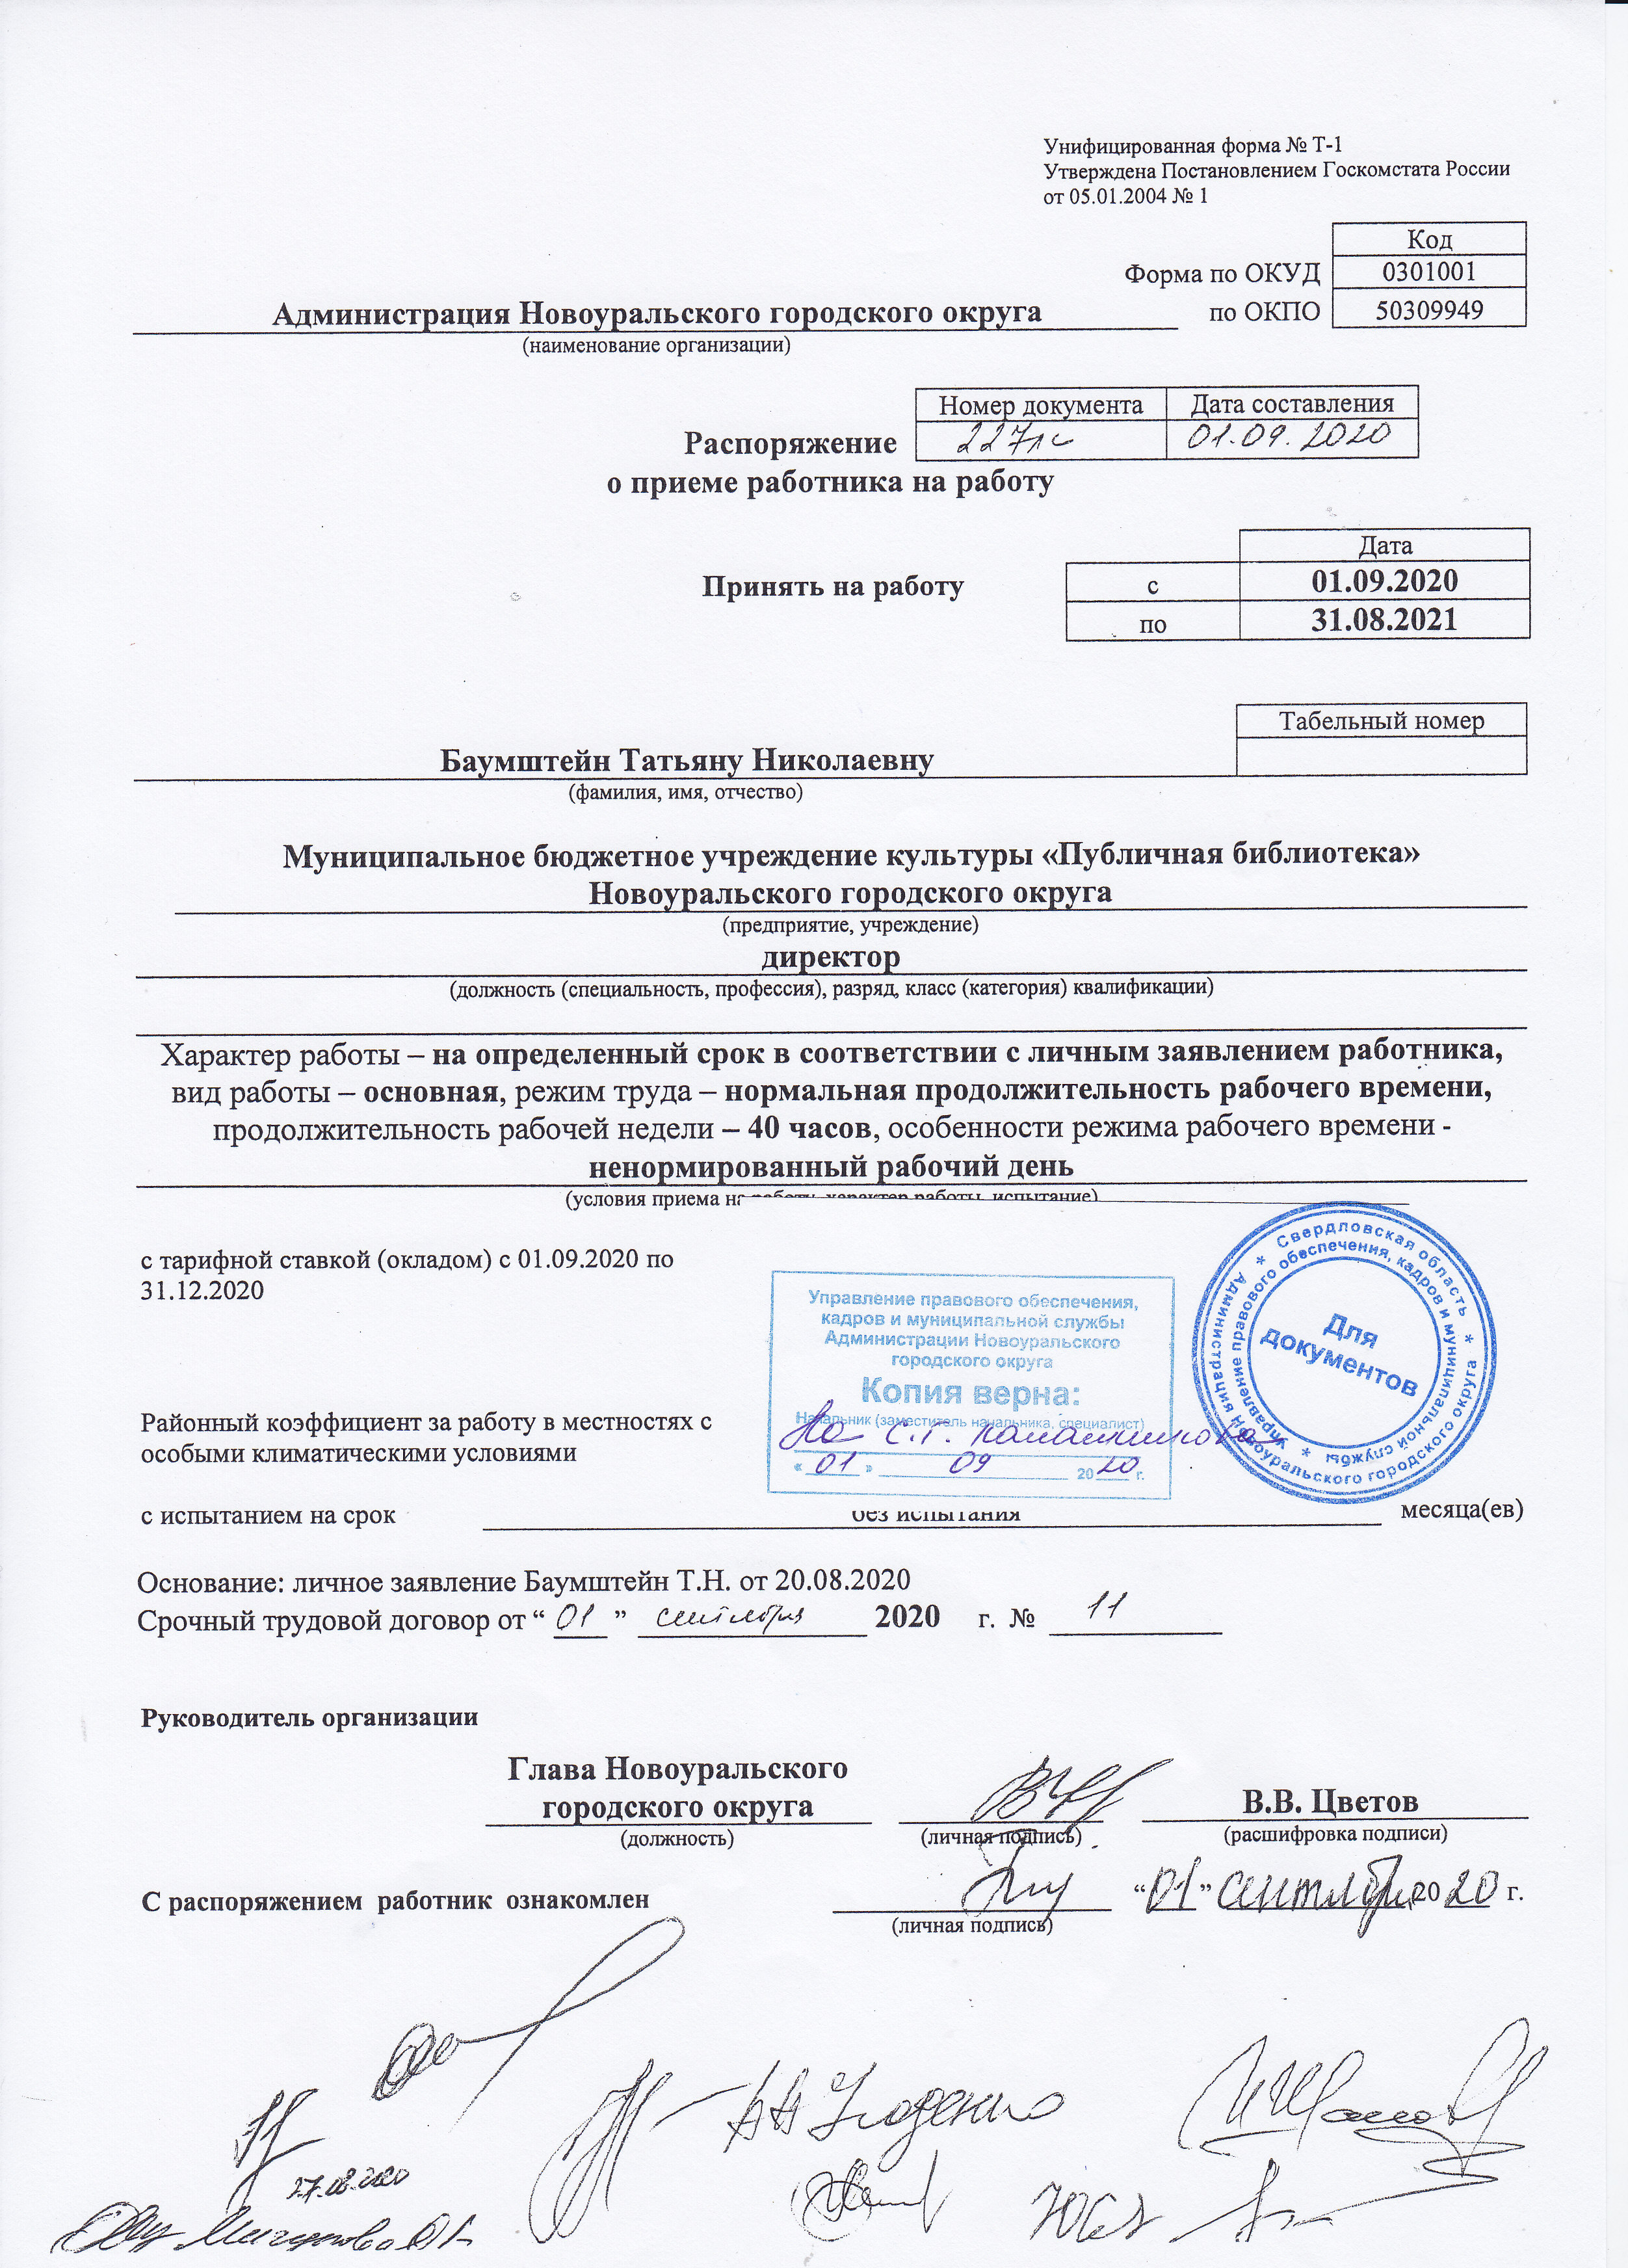 Унифицированная форма № Т-1
Утверждена Постановлением Госкомстата России
от 05.01.2004 № 1
Код
Форма по ОКУД 0301001
Администрация Новоуральского городского округа по ОКПО 50309949
(наименование организации)
Номер документа Дата составления
Распоряжение 227лс 01.09.2020
о приеме работника на работу
Дата
Принять на работу с 01.09.2020
по 31.08.2021
Табельный номер
Баумштейн Татьяну Николаевну
(фамилия, имя, отчество)
Муниципальное бюджетное учреждение культуры «Публичная библиотека»
Новоуральского городского округа
(предприятие, учреждение)
директор
(должность (специальность, профессия), разряд, класс (категория) квалификации)
Характер работы – на определенный срок в соответствии с личным заявлением работника,
вид работы – основная, режим труда – нормальная продолжительность рабочего времени,
продолжительность рабочей недели – 40 часов, особенности режима рабочего времени -
ненормированный рабочий день
(условия приема на работу, характер работы, испытание)
с тарифной ставкой (окладом) с 01.09.2020 по
31.12.2020
Управление правового обеспечения,
кадров и муниципальной службы
Администрации Новоуральского
городского округа
Копия верна:
Начальник (заместитель начальника, специалист)
« 01 » 09 2020 г.
* Свердловская область * Администрация Новоуральского городского округа
Управление правового обеспечения, кадров и муниципальной службы *
Для
документов
Районный коэффициент за работу в местностях с
особыми климатическими условиями
с испытанием на срок без испытания месяца(ев)
Основание: личное заявление Баумштейн Т.Н. от 20.08.2020
Срочный трудовой договор от “ 01 ” сентября 2020 г. № 11
Руководитель организации
Глава Новоуральского
городского округа В.В. Цветов
(должность) (личная подпись) (расшифровка подписи)
С распоряжением работник ознакомлен “ 01 ” сентября 20 20 г.
(личная подпись)
27.08.2020